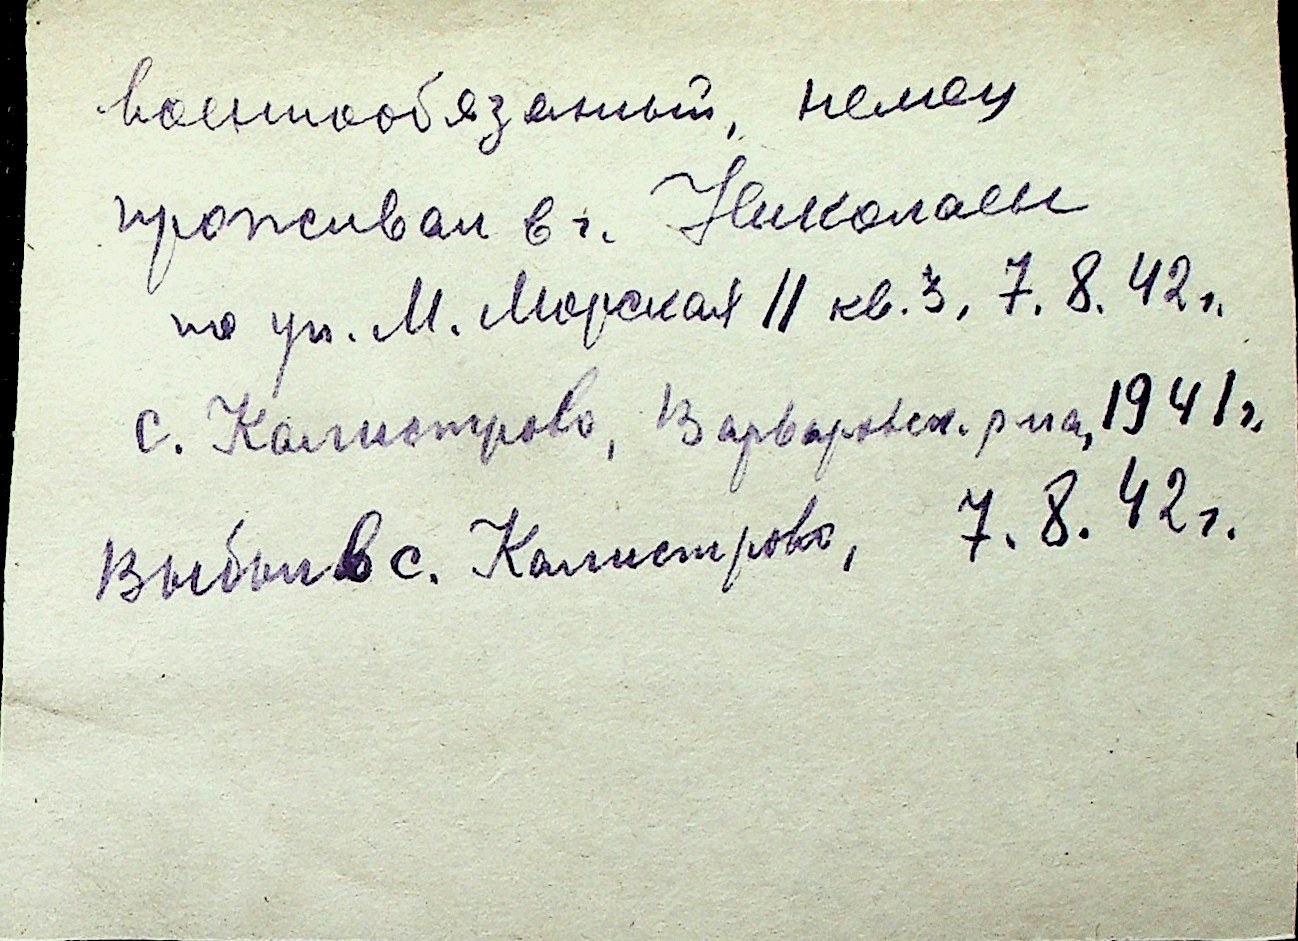 военнообязаный, немец
проживал в г. Николаеве
по ул. М. Морская 11 кв. 3, 7. 8. 42 г.
с. Калистрово, Варваровск. р-на, 1941 г.
Выбыл в с. Калистрово, 7. 8. 42 г.